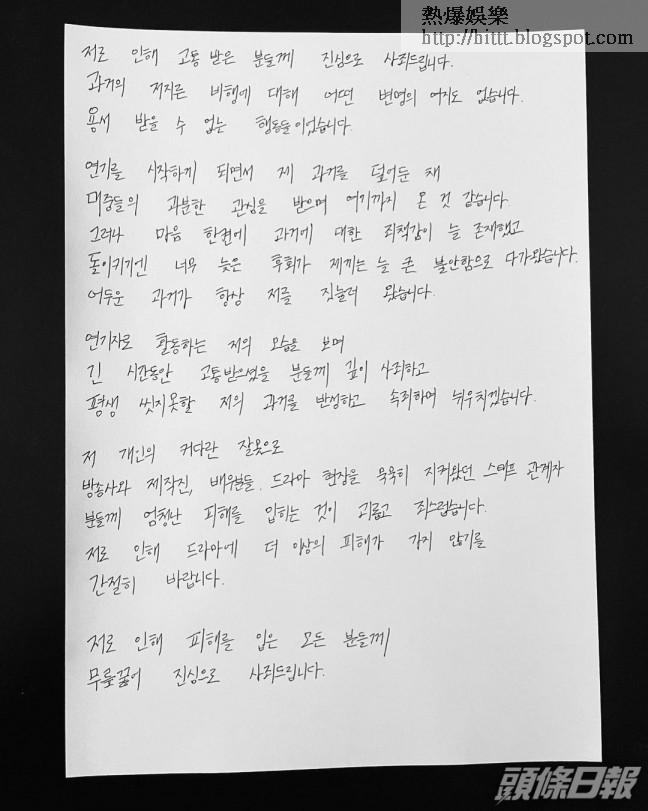 熱爆娛樂
http://hittt.blogspot.com
저로 인해 고통 받은 분들께 진심으로 사죄드립니다.
과거의 저지른 비행에 대해 어떤 변명의 여지도 없습니다.
용서 받을 수 없는 행동들이었습니다.
연기를 시작하게 되면서 제 과거를 덮어둔 채
대중들의 과분한 관심을 받으며 여기까지 온 것 같습니다.
그러나 마음 한켠에 과거에 대한 죄책감이 늘 존재했고
돌이키기엔 너무 늦은 후회가 저에게는 늘 큰 불안함으로 다가왔습니다.
어두운 과거가 항상 저를 짓눌러 왔습니다.
연기자로 활동하는 저의 모습을 보며
긴 시간동안 고통받으셨을 분들께 깊이 사죄하고
평생 씻지못할 저의 과거를 반성하고 속죄하며 뉘우치겠습니다.
저 개인의 커다란 잘못으로
방송사와 제작진, 배우분들, 드라마 현장을 묵묵히 지켜왔던 스태프 관계자
분들께 엄청난 피해를 입히는 것이 괴롭고 죄스럽습니다.
저로 인해 드라마에 더 이상의 피해가 가지 않기를
간절히 바랍니다.
저로 인해 피해를 입은 모든 분들께
무릎꿇어 진심으로 사죄드립니다.
頭條日報